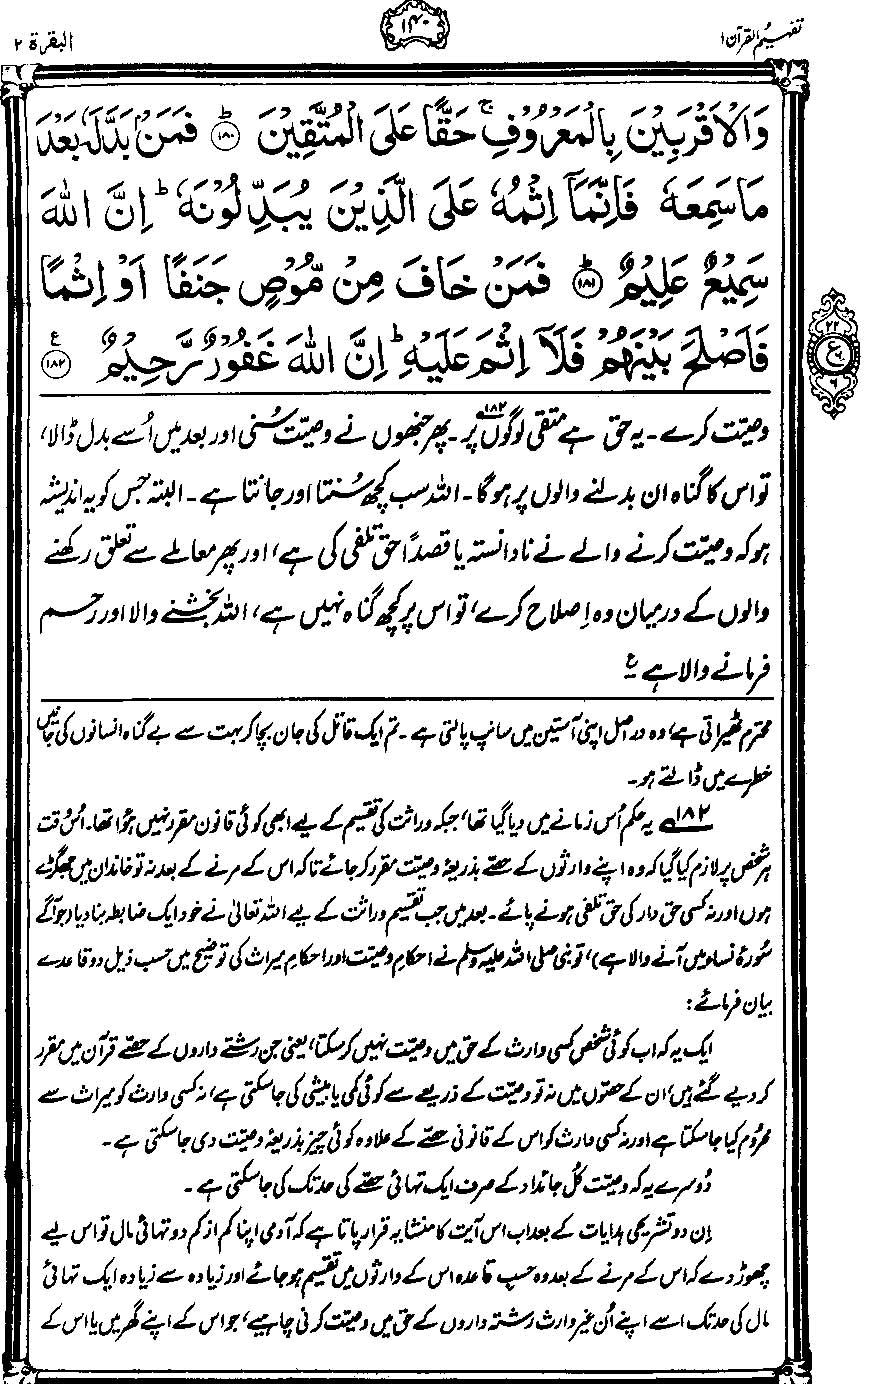 تفہیم القرآن ۱
۱۴۰
البقرۃ ۲
وَالْاَقْرَبِيْنَ بِالْمَعْرُوْفِ ۚ حَقًّا عَلَى الْمُتَّقِيْنَ ؕ۱۸۰ فَمَنْۢ بَدَّلَهٗ بَعْدَ
مَا سَمِعَهٗ فَاِنَّمَاۤ اِثْمُهٗ عَلَى الَّذِيْنَ يُبَدِّلُوْنَهٗ ؕ اِنَّ اللّٰهَ
سَمِيْعٌ عَلِيْمٌ ؕ۱۸۱ فَمَنْ خَافَ مِنْ مُّوْصٍ جَنَفًا اَوْ اِثْمًا
فَاَصْلَحَ بَيْنَهُمْ فَلَاۤ اِثْمَ عَلَيْهِ ؕ اِنَّ اللّٰهَ غَفُوْرٌ رَّحِيْمٌ ۱۸۲ ع
۲۲
ع
۶
وصیّت کرے۔ یہ حق ہے متقی لوگوں پر۱۸۲۔ پھر جنھوں نے وصیّت سُنی اور بعد میں اُسے بدل ڈالا،
تو اس کا گناہ ان بدلنے والوں پر ہوگا۔ اللہ سب کچھ سُنتا اور جانتا ہے۔ البتہ جس کو یہ اندیشہ
ہو کہ وصیّت کرنے والے نے نادانستہ یا قصداً حق تلفی کی ہے، اور پھر معاملے سے تعلق رکھنے
والوں کے درمیان وہ اِصلاح کرے، تو اس پر کچھ گناہ نہیں ہے، اللہ بخشنے والا اور رحم
فرمانے والا ہے ع
محترم ٹھیراتی ہے، وہ دراصل اپنی آستین میں سانپ پالتی ہے۔ تم ایک قاتل کی جان بچا کر بہت سے بے گناہ انسانوں کی جانیں
خطرے میں ڈالتے ہو۔
۱۸۲ یہ حکم اُس زمانے میں دیا گیا تھا، جبکہ وراثت کی تقسیم کے لیے ابھی کوئی قانون مقرر نہیں ہؤا تھا۔ اُس وقت
ہر شخص پر لازم کیا گیا کہ وہ اپنے وارثوں کے حصّے بذریعۂ وصیّت مقرر کر جائے تاکہ اس کے مرنے کے بعد نہ تو خاندان میں جھگڑے
ہوں اور نہ کسی حق دار کی حق تلفی ہونے پائے۔ بعد میں جب تقسیمِ وراثت کے لیے اللہ تعالیٰ نے خود ایک ضابطہ بنا دیا (جو آگے
سُورۂ نساء میں آنے والا ہے)، تو نبی صلی اللہ علیہ وسلم نے احکامِ وصیّت اور احکامِ میراث کی توضیح میں حسبِ ذیل دو قاعدے
بیان فرمائے:
ایک یہ کہ اب کوئی شخص کسی وارث کے حق میں وصیّت نہیں کر سکتا، یعنی جن رشتے داروں کے حصّے قرآن میں مقرر
کر دیے گئے ہیں، ان کے حصّوں میں نہ تو وصیّت کے ذریعے سے کوئی کمی یا بیشی کی جا سکتی ہے، نہ کسی وارث کو میراث سے
محرُوم کیا جا سکتا ہے اور نہ کسی وارث کو اس کے قانونی حصّے کے علاوہ کوئی چیز بذریعۂ وصیّت دی جا سکتی ہے۔
دُوسرے یہ کہ وصیّت کُل جائداد کے صرف ایک تہائی حصّے کی حد تک کی جا سکتی ہے۔
اِن دو تشریحی ہدایات کے بعد اب اس آیت کا منشا یہ قرار پاتا ہے کہ آدمی اپنا کم از کم دو تہائی مال تو اس لیے
چھوڑ دے کہ اس کے مرنے کے بعد وہ حسبِ قاعدہ اس کے وارثوں میں تقسیم ہو جائے اور زیادہ سے زیادہ ایک تہائی
مال کی حد تک اسے اپنے اُن غیر وارث رشتہ داروں کے حق میں وصیّت کرنی چاہیے، جو اس کے اپنے گھر میں یا اس کے